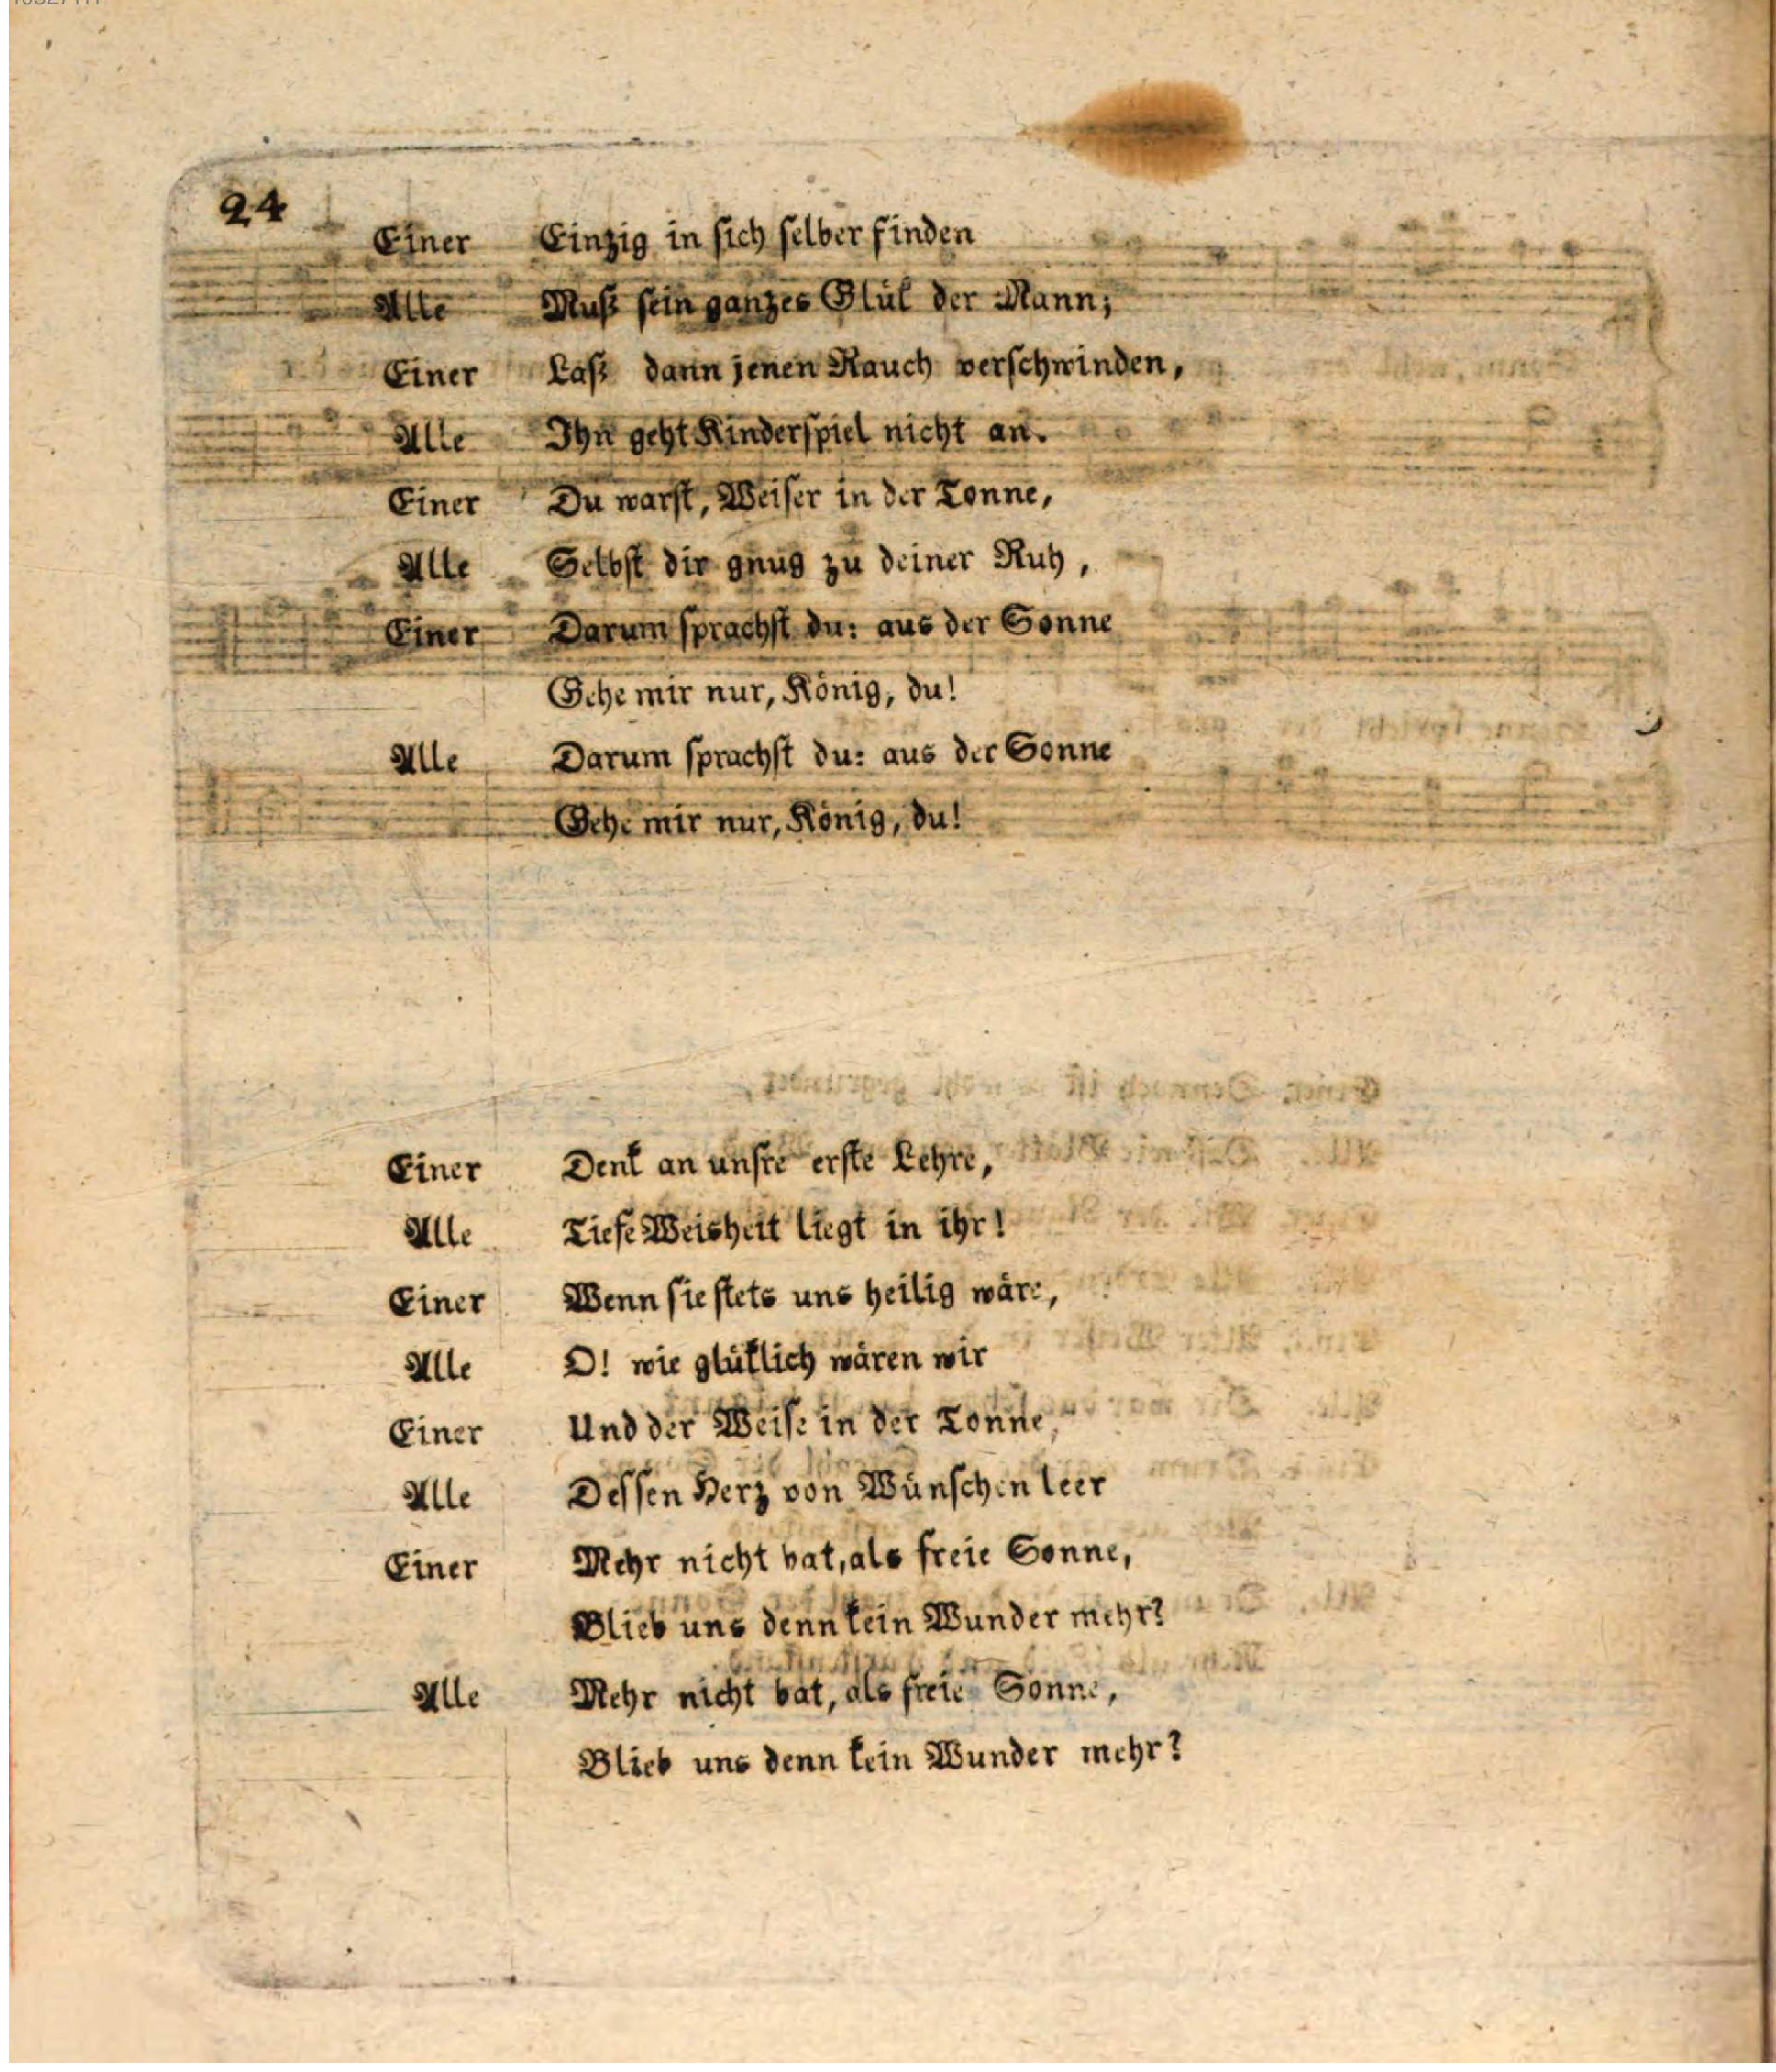 24
Einer Einzig in sich selber finden
Alle Muß sein ganzes Glük der Mann;
Einer Laß dann jenen Rauch verschwinden,
Alle Ihn geht Kinderspiel nicht an.
Einer Du warst, Weiser in der Tonne,
Alle Selbst dir gnug zu deiner Ruh,
Einer Darum sprachst du: aus der Sonne
Gehe mir nur, König, du!
Alle Darum sprachst du: aus der Sonne
Gehe mir nur, König, du!
Einer Denk an unsre erste Lehre,
Alle Tiefe Weisheit liegt in ihr!
Einer Wenn sie stets uns heilig wäre,
Alle O! wie glüklich wären wir
Einer Und der Weise in der Tonne,
Alle Dessen Herz von Wünschen leer
Einer Mehr nicht bat, als freie Sonne,
Blieb uns denn kein Wunder mehr?
Alle Mehr nicht bat, als freie Sonne,
Blieb uns denn kein Wunder mehr?